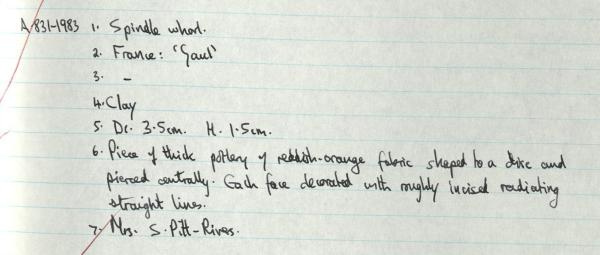 A 831-1983 1. Spindle whorl.
2. France: 'Gaul'
3. -
4. Clay
5. Dr. 3.5cm. H. 1.5cm.
6. Piece of thick pottery of reddish-orange fabric shaped to a disc and
pierced centrally. Each face decorated with roughly incised radiating
straight lines.
7. Mrs. S. Pitt-Rivers.